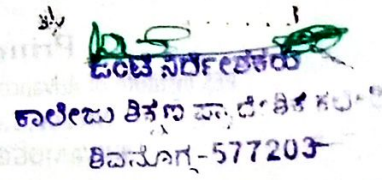 ಜಂಟಿ ನಿರ್ದೇಶಕರು
ಕಾಲೇಜು ಶಿಕ್ಷಣ ಪ್ರಾದೇಶಿಕ
ಶಿವಮೊಗ್ಗ-577203